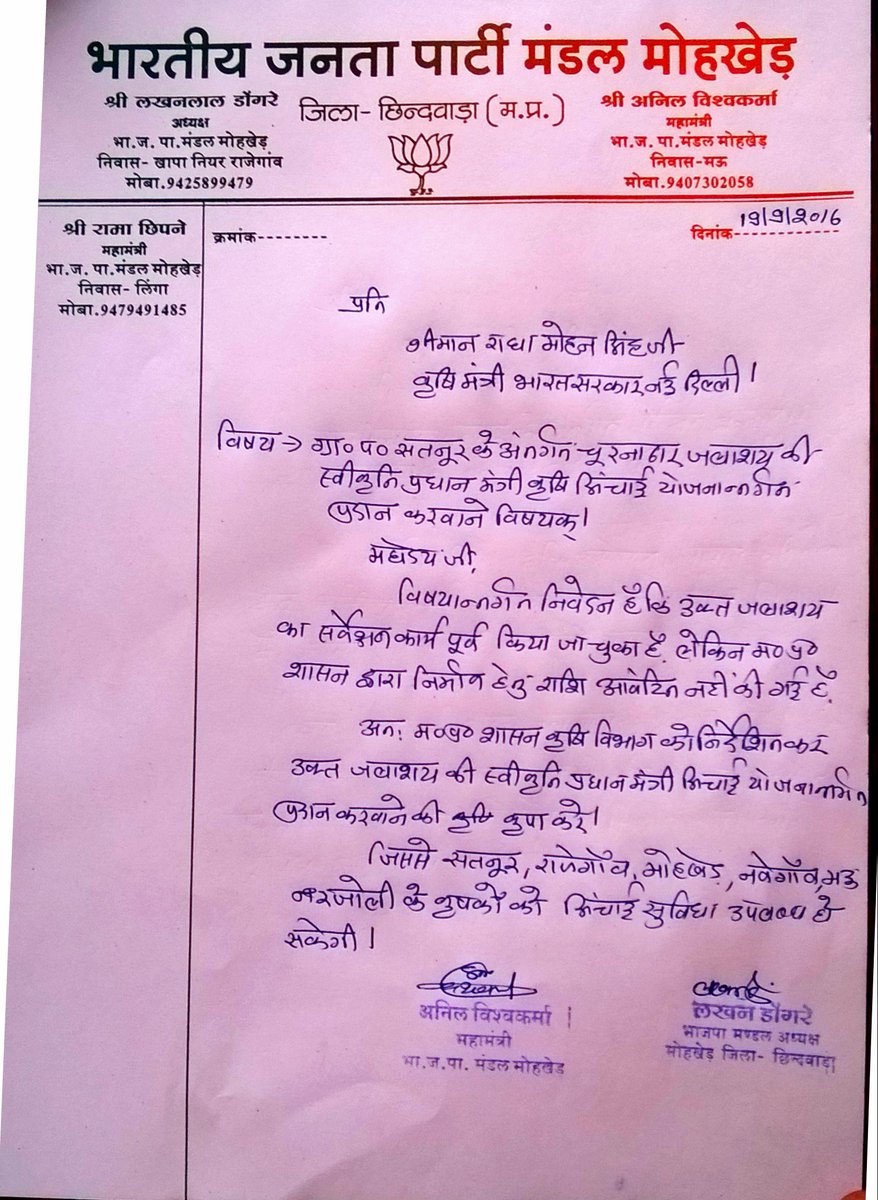 भारतीय जनता पार्टी मंडल मोहखेड़
श्री लखनलाल डोंगरे
अध्यक्ष
भा.ज. पा.मंडल मोहखेड़
निवास- खापा नियर राजेगांव
मोबा.9425899479
जिला- छिन्दवाड़ा (म.प्र.)
श्री अनिल विश्वकर्मा
महामंत्री
भा.ज. पा.मंडल मोहखेड़
निवास-मऊ
मोबा.9407302058
श्री रामा छिपने
महामंत्री
भा.ज. पा.मंडल मोहखेड़
निवास- लिंगा
मोबा.9479491485
क्रमांक--------
दिनांक------------- 19/9/2016
प्रति
श्रीमान राधा मोहन सिंह जी
कृषि मंत्री भारत सरकार नई दिल्ली।
विषय → ग्रा० प० सतनूर के अंर्तगत चूरनाहार जलाशय की
स्वीकृति प्रधान मंत्री कृषि सिंचाई योजनान्तर्गत
प्रदान करवाने विषयक्।
महोदय जी,
विषयान्तर्गत निवेदन है कि उक्त जलाशय
का सर्वेक्षन कार्य पूर्व किया जा चुका है. लेकिन म० प्र०
शासन द्वारा निर्माण हेतु राशि आवंटित नही की गई है.
अतः म० प्र० शासन कृषि विभाग को निर्देशित कर
उक्त जलाशय की स्वीकृति प्रधान मंत्री सिंचाई योजनान्तर्गत
प्रदान करवाने की कृपा करें।
जिससे सतनूर, राजेगाँव, मोहखेड़, नवेगाँव, मऊ
नरजोली के कृषकों को सिंचाई सुविधा उपलब्ध हो
सकेगी।
अनिल विश्वकर्मा
महामंत्री
भा.ज.पा. मंडल मोहखेड़
लखन डोंगरे
भाजपा मण्डल अध्यक्ष
मोहखेड़ जिला- छिन्दवाड़ा